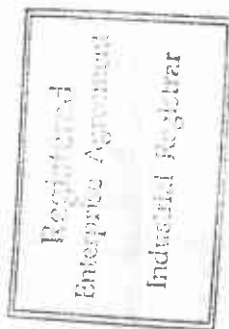 Registered
Enterprise Agreement
Industrial Registrar